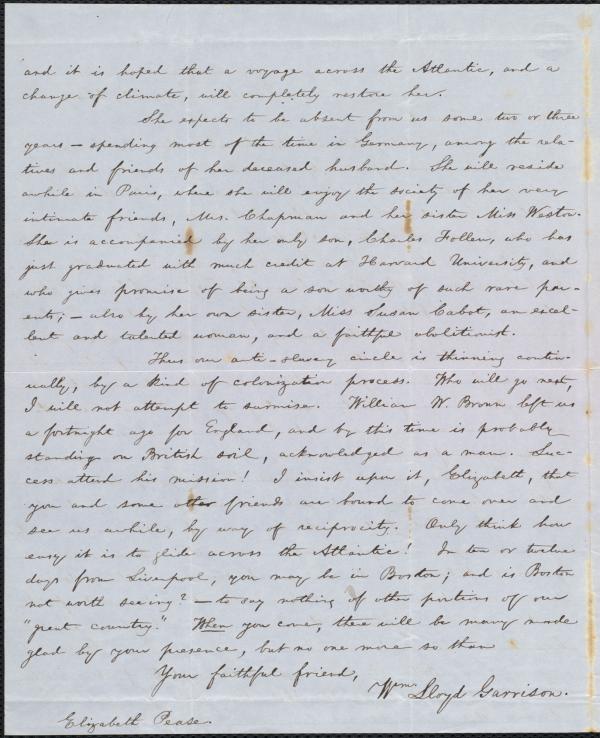 and it is hoped that a voyage across the Atlantic, and a
change of climate, will completely restore her.
She expects to be absent from us some two or three
years — spending most of the time in Germany, among the rela-
tives and friends of her deceased husband. She will reside
awhile in Paris, where she will enjoy the society of her very
intimate friends, Mrs. Chapman and her sister Miss Weston.
She is accompanied by her only son, Charles Follen, who has
just graduated with much credit at Harvard University, and
who gives promise of being a son worthy of such rare par-
ents; — also by her own sister, Miss Susan Cabot, an excel-
lent and talented woman, and a faithful abolitionist.
Thus our anti-slavery circle is thinning contin-
ually, by a kind of colonization process. Who will go next,
I will not attempt to surmise. William W. Brown left us
a fortnight ago for England, and by this time is probably
standing on British soil, acknowledged as a man. Suc-
cess attend his mission! I insist upon it, Elizabeth, that
you and some other friends are bound to come over and
see us awhile, by way of reciprocity. Only think how
easy it is to glide across the Atlantic! In ten or twelve
days from Liverpool, you may be in Boston; and is Boston
not worth seeing? — to say nothing of other portions of our
"great country." When you come, there will be many made
glad by your presence, but no one more so than
Your faithful friend,
Wm. Lloyd Garrison.
Elizabeth Pease.